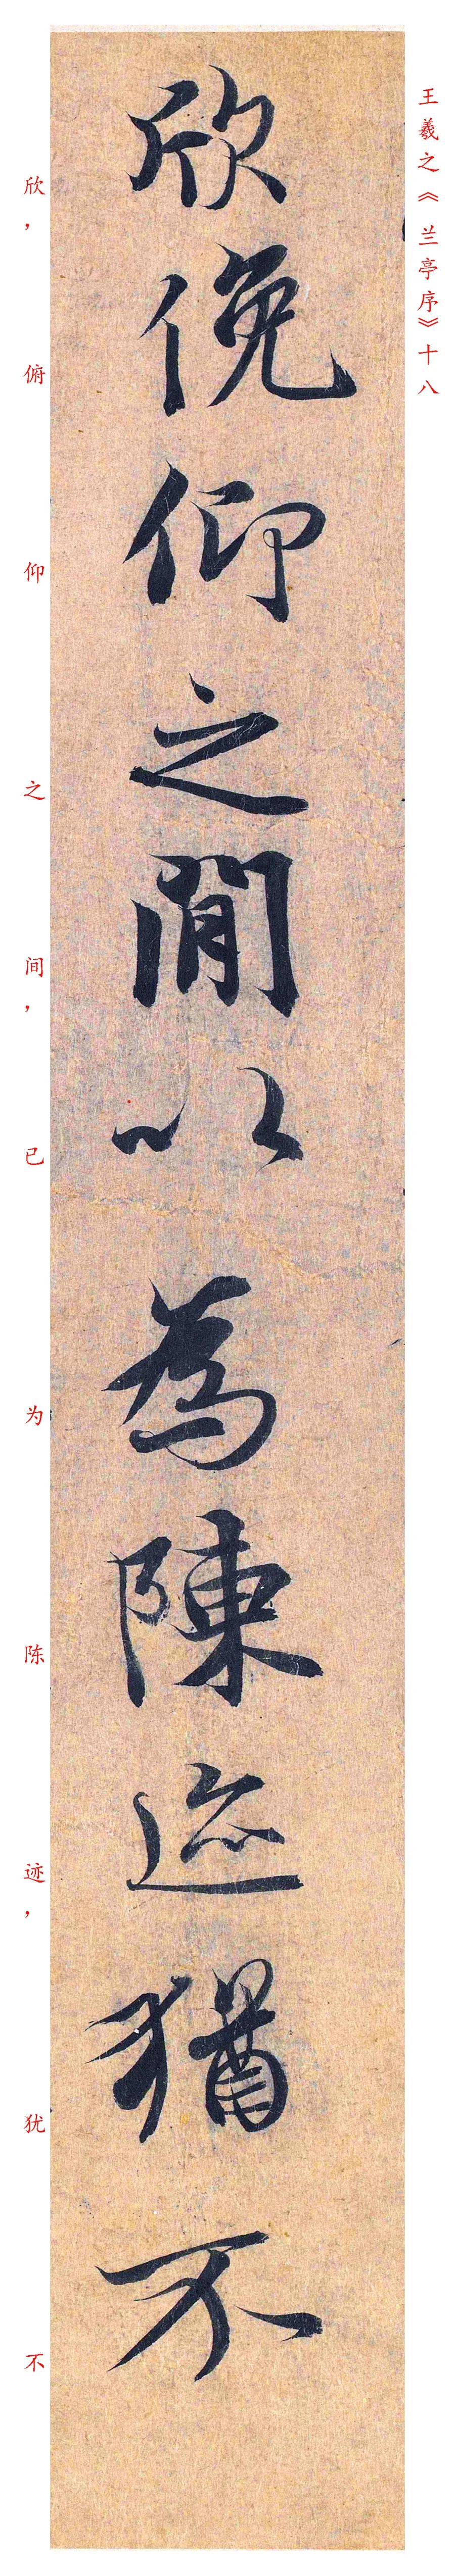 王羲之《兰亭序》十八
欣俛仰之閒以為陳迹猶不
欣，俯仰之间，已为陈迹，犹不